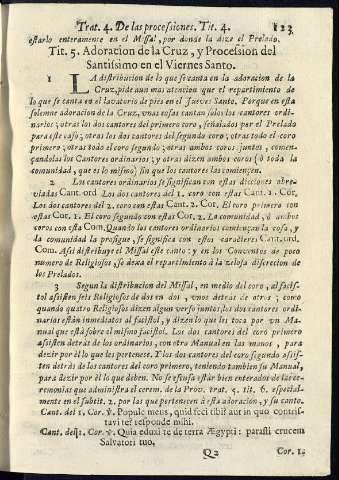 Trat. 4. De las processiones. Tit. 4. 123
estarlo enteramente en el Missal, por donde la dize el Prelado.
Tit. 5. Adoracion de la Cruz, y Procession del
Santissimo en el Viernes Santo.
1 LA distribucion de lo que se canta en la adoracion de la
Cruz, pide aun mas atencion que el repartimiento de
lo que se canta en el lavatorio de pies en el Jueves Santo. Porque en esta
solemne adoracion de la Cruz, unas cosas cantan solos los cantores ordi-
narios; otras los dos cantores del primero coro, señalados por el Prelado
para este caso; otras los dos cantores del segundo coro; otras todo el coro
primero; otras todo el coro segundo; otras ambos coros juntos, comen-
çandolas los Cantores ordinarios; y otras dizen ambos coros (ò toda la
comunidad, que es lo mismo) sin que los cantores las comiençen.
2 Los cantores ordinarios se significan con estas dicciones abre-
viadas Cant. ord. Los dos cantores del 1. coro con estas Cant. 1. Cor.
Los dos cantores del 2. coro con estas Cant. 2. Cor. El coro primero con
estas Cor. 1. El coro segundo con estas Cor. 2. La comunidad, ò ambos
coros con esta Com. Quando los cantores ordinarios comiençan la cosa, y
la comunidad la prosigue, se significa con estos caracteres Cant. ord.
Com. Assi distribuye el Missal este canto; y en los Conventos de poco
numero de Religiosos, se dexa el repartimiento à la zelosa discrecion de
los Prelados.
3 Segun la distribucion del Missal, en medio del coro, al facis-
tol assisten seis Religiosos de dos en dos, unos detras de otros; como
quando quatro Religiosos dizen algun verso juntos, los dos cantores ordi-
narios estàn inmediatos al facistol, y dizen lo que les toca por un Ma-
nual que està sobre el mismo facistol. Los dos cantores del coro primero
assisten detràs de los ordinarios, con otro Manual en las manos, para
dezir por èl lo que les pertenece. Y los dos cantores del coro segundo assis-
ten detràs de los cantores del coro primero, teniendo tambien su Manual,
para dezir por èl lo que deben. No se escusa estàr bien enterados de las ce-
remonias que administra el cerem. de la Prov. trat. 5. tit. 6. especial-
mente en el subtit. 2. por las que pertenecen à esta adoracion, y su canto.
Cant. del 1. Cor. ℣. Popule meus, quid feci tibi? aut in quo contris-
tavi te? responde mihi.
Cant. del 1. Cor. ℣. Quia eduxi te de terra Ægypti: parasti crucem
Salvatori tuo.
Q2 Cor. 1.